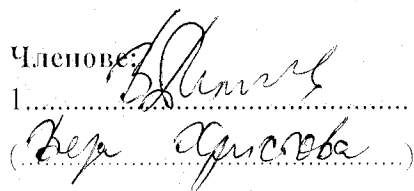 Членове:
1..........................................
(Вера Христова)